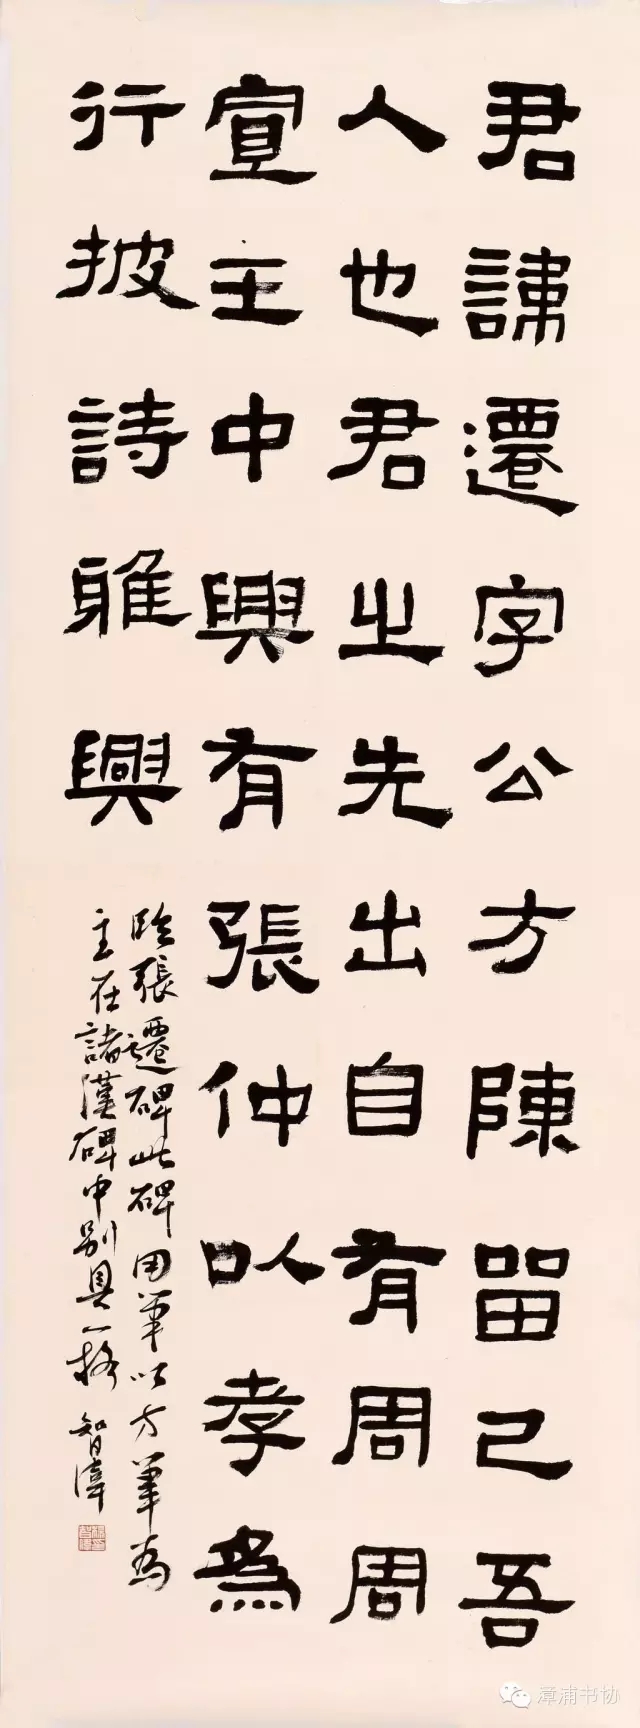 君諱遷字公方陳留己吾
人也君之先出自有周周
宣王中興有張仲以孝為
行披詩雅興
臨張遷碑此碑用筆以方筆為
主在諸漢碑中別具一格 智偉
漳浦书协